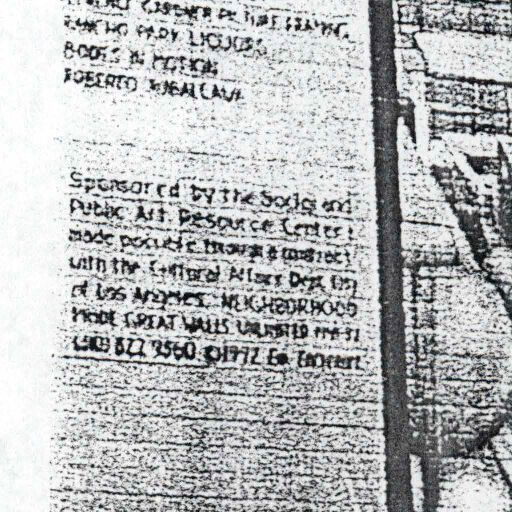 GARDNER PICTURE FRAMING
RANCHO PARK LIQUORS
BODIES IN MOTION
ROBERTO
Sponsored by The Social and
Public Art Resource Center;
made possible through a contract
with the Cultural Affairs Dept. City
of Los Angeles. NEIGHBORHOOD
PRIDE GREAT WALLS UNLIMITED
(310) 822 9560. ©1992